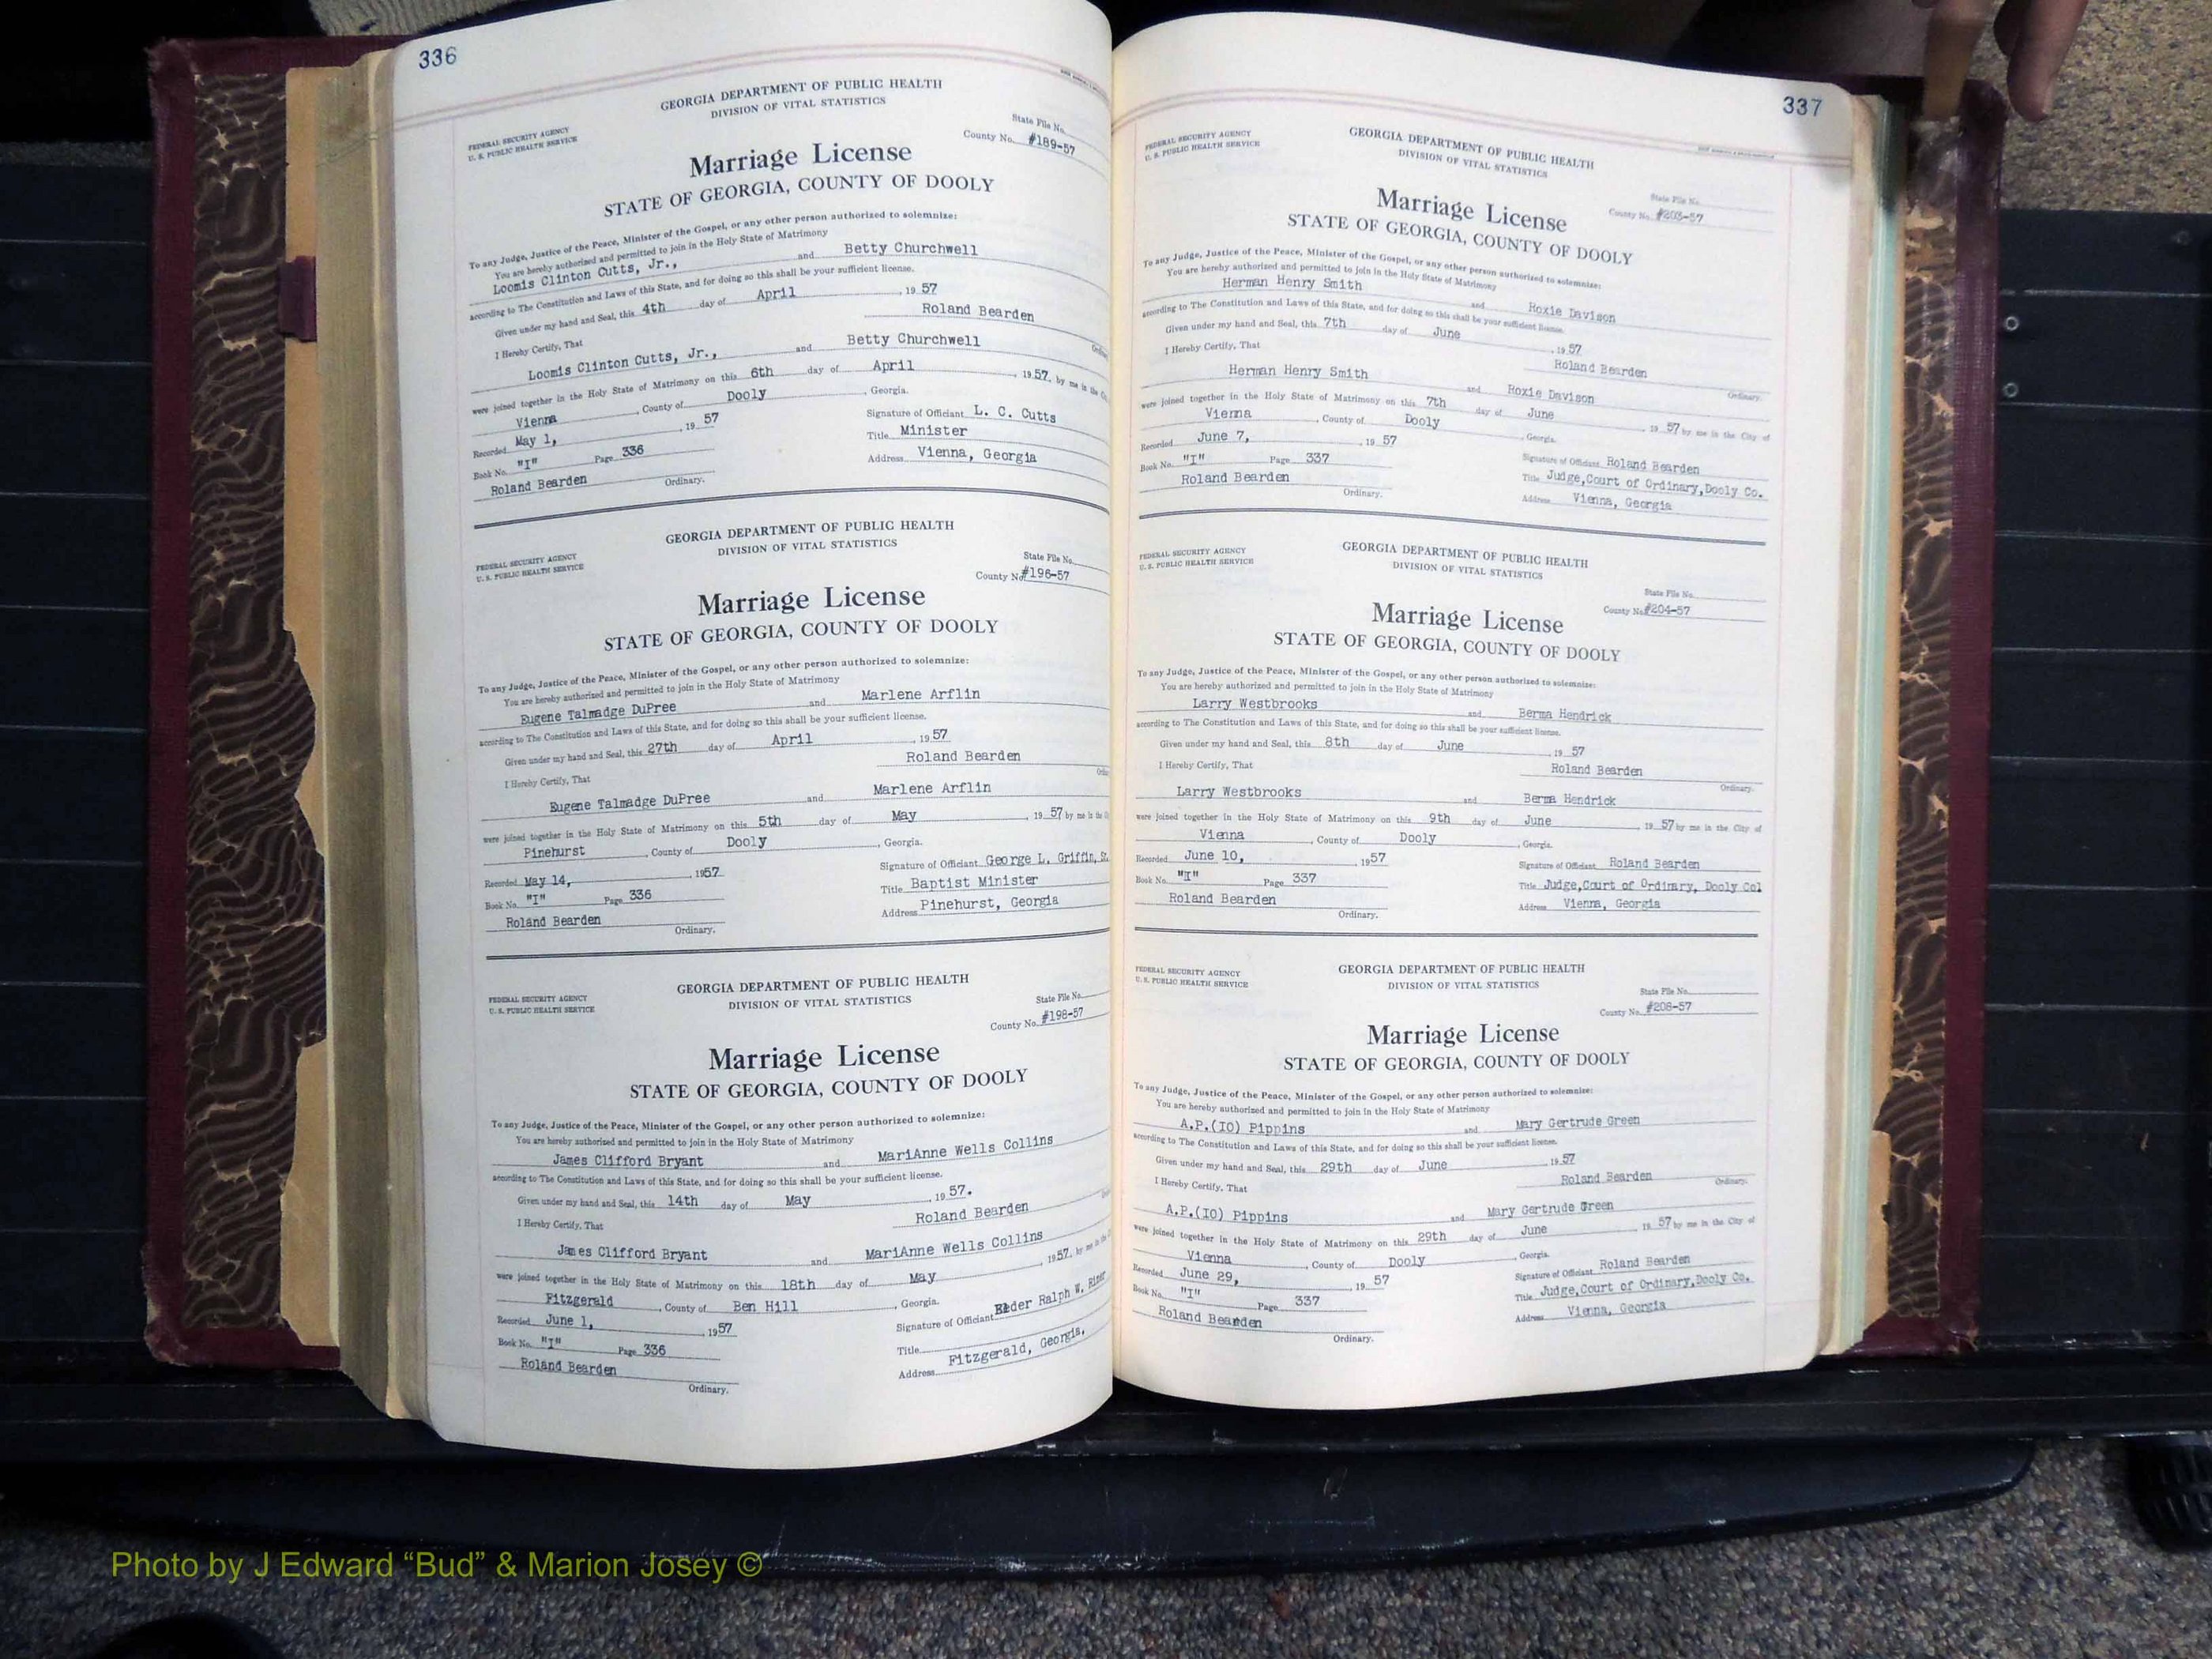 336
GEORGIA DEPARTMENT OF PUBLIC HEALTH
DIVISION OF VITAL STATISTICS
FEDERAL SECURITY AGENCY
U. S. PUBLIC HEALTH SERVICE
State File No.
County No. #189-57
Marriage License
STATE OF GEORGIA, COUNTY OF DOOLY
To any Judge, Justice of the Peace, Minister of the Gospel, or any other person authorized to solemnize:
You are hereby authorized and permitted to join in the Holy State of Matrimony
Loomis Clinton Cutts, Jr., and Betty Churchwell
according to The Constitution and Laws of this State, and for doing so this shall be your sufficient license.
Given under my hand and Seal, this 4th day of April, 19 57
Roland Bearden
I Hereby Certify, That
Loomis Clinton Cutts, Jr., and Betty Churchwell
were joined together in the Holy State of Matrimony on this 6th day of April, 19 57, by me in the
Vienna, County of Dooly, Georgia.
Recorded May 1, 19 57
Signature of Officiant L. C. Cutts
Book No. "I" Page 336
Title Minister
Roland Bearden
Address Vienna, Georgia
Ordinary.
GEORGIA DEPARTMENT OF PUBLIC HEALTH
DIVISION OF VITAL STATISTICS
FEDERAL SECURITY AGENCY
U. S. PUBLIC HEALTH SERVICE
State File No.
County No. #196-57
Marriage License
STATE OF GEORGIA, COUNTY OF DOOLY
To any Judge, Justice of the Peace, Minister of the Gospel, or any other person authorized to solemnize:
You are hereby authorized and permitted to join in the Holy State of Matrimony
Eugene Talmadge DuPree and Marlene Arflin
according to The Constitution and Laws of this State, and for doing so this shall be your sufficient license.
Given under my hand and Seal, this 27th day of April, 19 57
Roland Bearden
I Hereby Certify, That
Eugene Talmadge DuPree and Marlene Arflin
were joined together in the Holy State of Matrimony on this 5th day of May, 19 57 by me in the
Pinehurst, County of Dooly, Georgia.
Recorded May 14, 1957
Signature of Officiant George L. Griffin,
Book No. "I" Page 336
Title Baptist Minister
Roland Bearden
Address Pinehurst, Georgia
Ordinary.
GEORGIA DEPARTMENT OF PUBLIC HEALTH
DIVISION OF VITAL STATISTICS
FEDERAL SECURITY AGENCY
U. S. PUBLIC HEALTH SERVICE
State File No.
County No. #198-57
Marriage License
STATE OF GEORGIA, COUNTY OF DOOLY
To any Judge, Justice of the Peace, Minister of the Gospel, or any other person authorized to solemnize:
You are hereby authorized and permitted to join in the Holy State of Matrimony
James Clifford Bryant and MariAnne Wells Collins
according to The Constitution and Laws of this State, and for doing so this shall be your sufficient license.
Given under my hand and Seal, this 14th day of May, 19 57.
Roland Bearden
I Hereby Certify, That
James Clifford Bryant and MariAnne Wells Collins
were joined together in the Holy State of Matrimony on this 18th day of May, 1957, by me in the
Fitzgerald, County of Ben Hill, Georgia.
Recorded June 1, 1957
Signature of Officiant Elder Ralph W.
Book No. "I" Page 336
Title
Roland Bearden
Address Fitzgerald, Georgia,
Ordinary.
337
GEORGIA DEPARTMENT OF PUBLIC HEALTH
DIVISION OF VITAL STATISTICS
FEDERAL SECURITY AGENCY
U. S. PUBLIC HEALTH SERVICE
State File No.
County No. #203-57
Marriage License
STATE OF GEORGIA, COUNTY OF DOOLY
To any Judge, Justice of the Peace, Minister of the Gospel, or any other person authorized to solemnize:
You are hereby authorized and permitted to join in the Holy State of Matrimony
Herman Henry Smith and Roxie Davison
according to The Constitution and Laws of this State, and for doing so this shall be your sufficient license.
Given under my hand and Seal, this 7th day of June, 19 57
Roland Bearden
I Hereby Certify, That
Ordinary.
Herman Henry Smith and Roxie Davison
were joined together in the Holy State of Matrimony on this 7th day of June, 19 57 by me in the City of
Vienna, County of Dooly, Georgia.
Recorded June 7, 19 57
Signature of Officiant Roland Bearden
Book No. "I" Page 337
Title Judge,Court of Ordinary,Dooly Co.
Roland Bearden
Address Vienna, Georgia
Ordinary.
GEORGIA DEPARTMENT OF PUBLIC HEALTH
DIVISION OF VITAL STATISTICS
FEDERAL SECURITY AGENCY
U. S. PUBLIC HEALTH SERVICE
State File No.
County No. #204-57
Marriage License
STATE OF GEORGIA, COUNTY OF DOOLY
To any Judge, Justice of the Peace, Minister of the Gospel, or any other person authorized to solemnize:
You are hereby authorized and permitted to join in the Holy State of Matrimony
Larry Westbrooks and Berma Hendrick
according to The Constitution and Laws of this State, and for doing so this shall be your sufficient license.
Given under my hand and Seal, this 8th day of June, 19 57
Roland Bearden
I Hereby Certify, That
Ordinary.
Larry Westbrooks and Berma Hendrick
were joined together in the Holy State of Matrimony on this 9th day of June, 19 57 by me in the City of
Vienna, County of Dooly, Georgia.
Recorded June 10, 1957
Signature of Officiant Roland Bearden
Book No. "I" Page 337
Title Judge,Court of Ordinary, Dooly Col
Roland Bearden
Address Vienna, Georgia
Ordinary.
GEORGIA DEPARTMENT OF PUBLIC HEALTH
DIVISION OF VITAL STATISTICS
FEDERAL SECURITY AGENCY
U. S. PUBLIC HEALTH SERVICE
State File No.
County No. #208-57
Marriage License
STATE OF GEORGIA, COUNTY OF DOOLY
To any Judge, Justice of the Peace, Minister of the Gospel, or any other person authorized to solemnize:
You are hereby authorized and permitted to join in the Holy State of Matrimony
A.P.(IO) Pippins and Mary Gertrude Green
according to The Constitution and Laws of this State, and for doing so this shall be your sufficient license.
Given under my hand and Seal, this 29th day of June, 19 57
Roland Bearden
I Hereby Certify, That
Ordinary.
A.P.(IO) Pippins and Mary Gertrude Green
were joined together in the Holy State of Matrimony on this 29th day of June, 19 57 by me in the City of
Vienna, County of Dooly, Georgia.
Recorded June 29, 19 57
Signature of Officiant Roland Bearden
Book No. "I" Page 337
Title Judge,Court of Ordinary,Dooly Co.
Roland Bearden
Address Vienna, Georgia
Ordinary.
Photo by J Edward “Bud” & Marion Josey ©